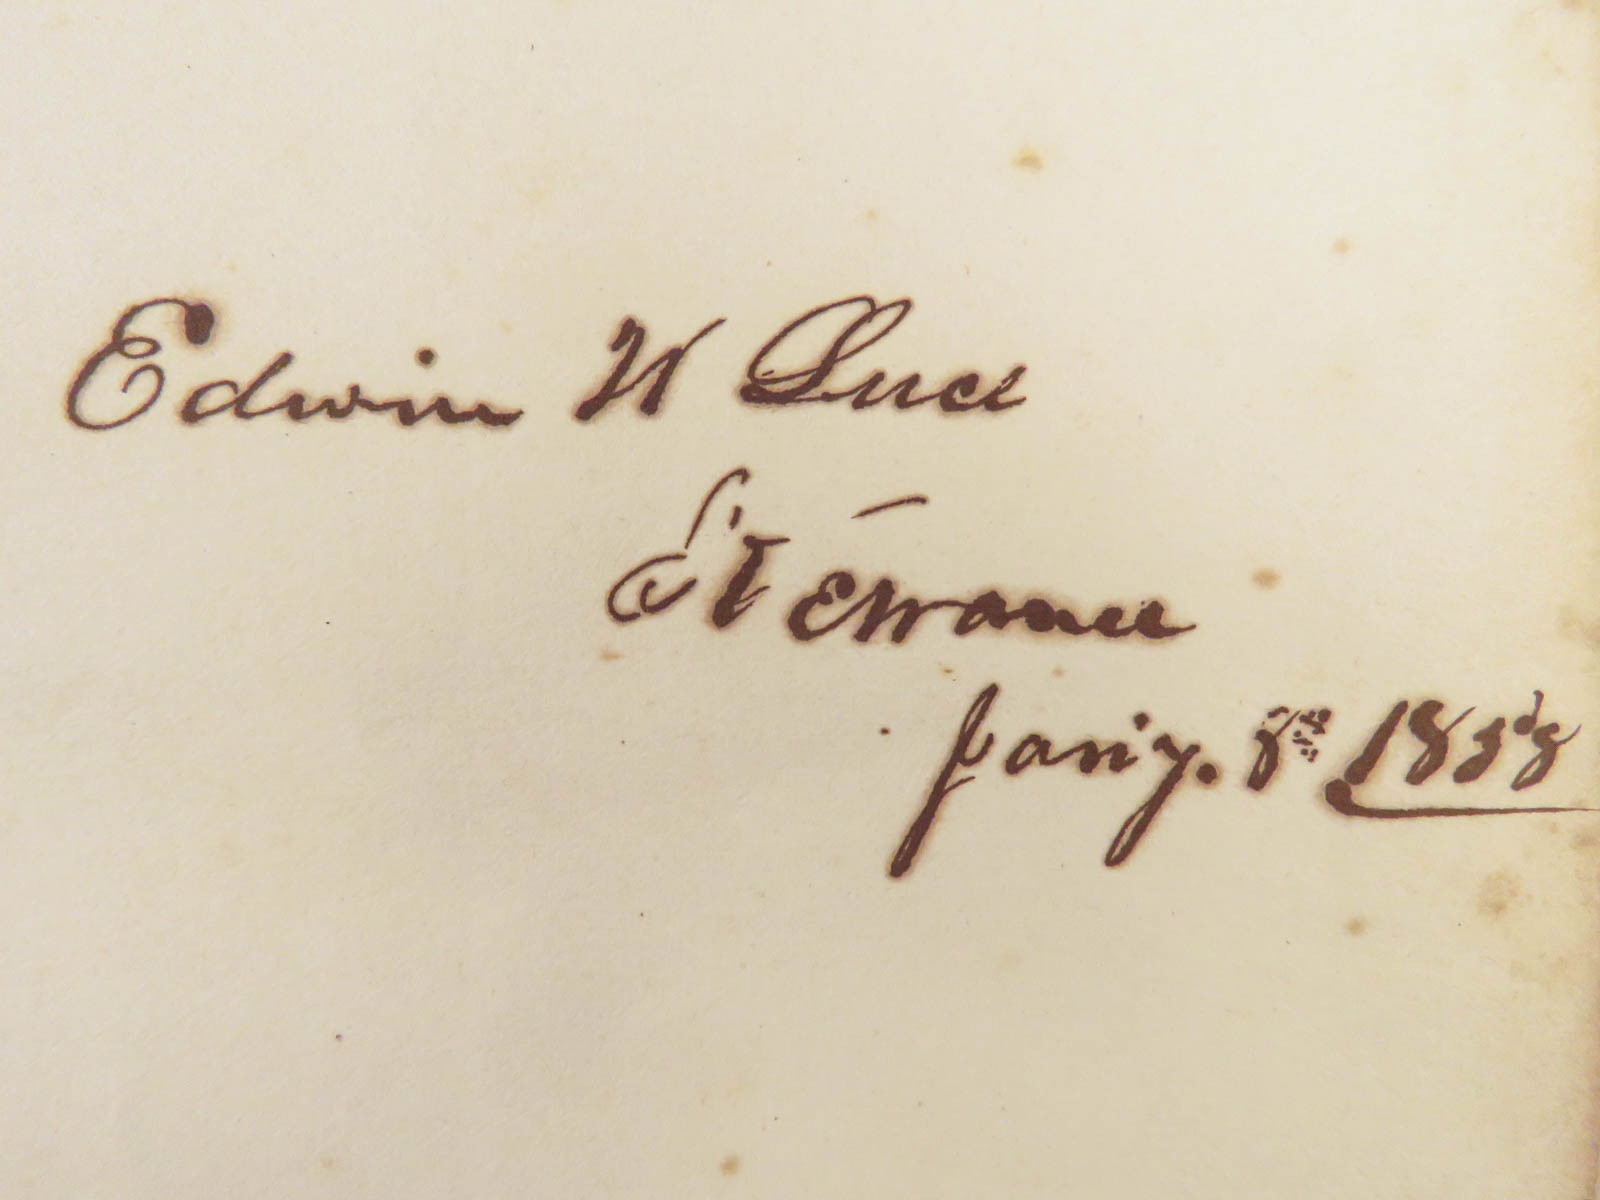 Edwin W Luce
Kewanee
Jan'y. 8th 1858